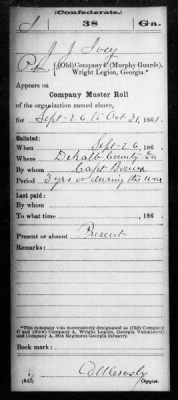 (Confederate.)
I 38 Ga.
J J Ivey
Pvt, (Old) Company C (Murphy Guards),
Wright Legion, Georgia.*
Appears on
Company Muster Roll
of the organization named above,
for Sept-26 to Oct 31, 1861.
Enlisted:
When Sept-26, 186 .
Where DeKalb County Ga
By whom Capt
Period 3 yrs or during the war
Last paid:
By whom
To what time , 186 .
Present or absent Present
Remarks:
*This company was successively designated as (Old) Company
C and (New) Company A, Wright Legion, Georgia Volunteers;
and Company A, 38th Regiment Georgia Infantry.
Book mark:
(642) Copyist.